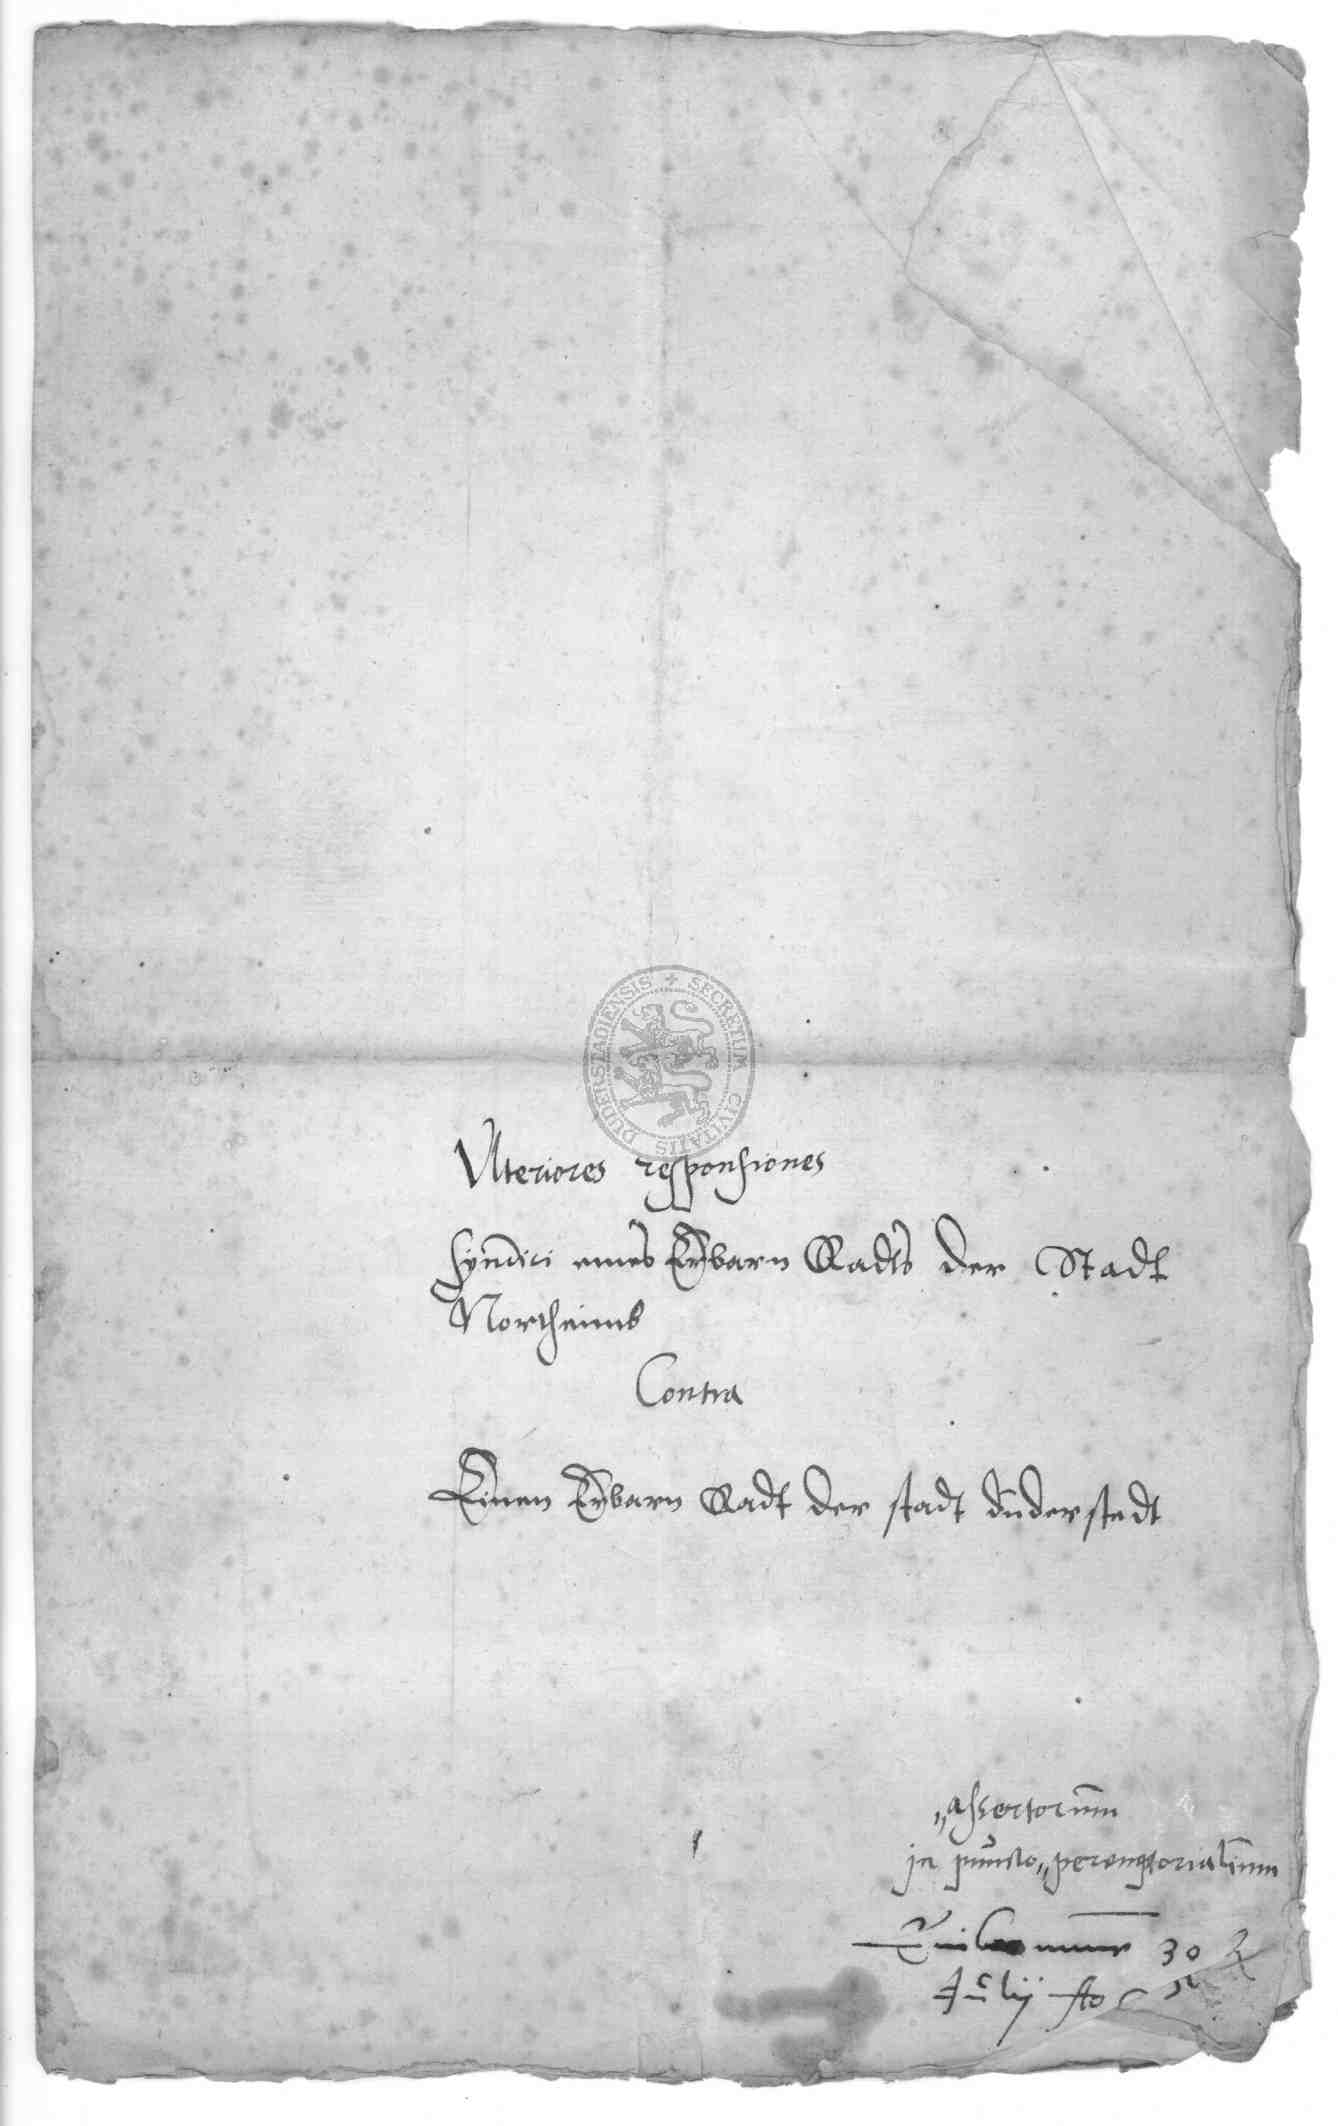 SECRETUM CIVITATIS DUDERSTADIENSIS
Ulteriores responsiones
Syndici eines Erbarn Radts der Stadt
Northeimb
Contra
Einen Erbarn Radt der stadt duderstadt
assertorum
in puncto peremptorialium
30
Julij